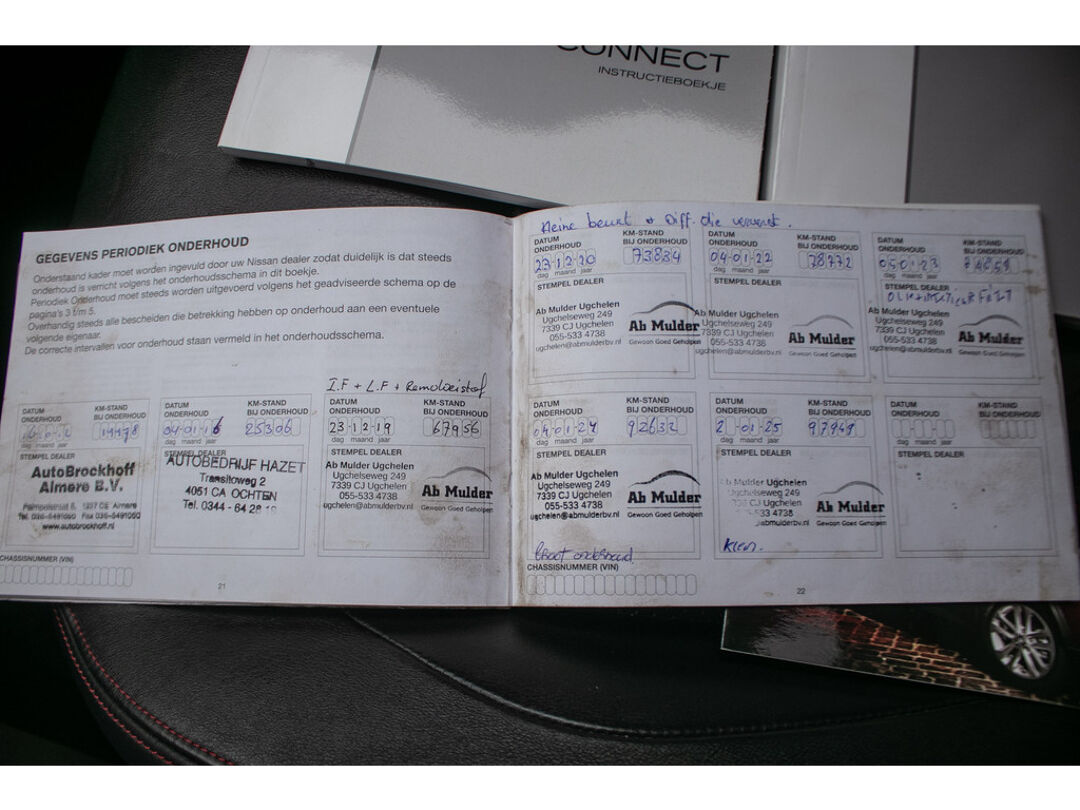 CONNECT
INSTRUCTIEBOEKJE
GEGEVENS PERIODIEK ONDERHOUD
Onderstaand kader moet worden ingevuld door uw Nissan dealer zodat duidelijk is dat steeds
onderhoud is verricht volgens het onderhoudsschema in dit boekje.
Periodiek Onderhoud moet steeds worden uitgevoerd volgens het geadviseerde schema op de
pagina's 3 t/m 5.
Overhandig steeds alle bescheiden die betrekking hebben op onderhoud aan een eventuele
volgende eigenaar.
De correcte intervallen voor onderhoud staan vermeld in het onderhoudsschema.
DATUM ONDERHOUD
KM-STAND BIJ ONDERHOUD
dag maand jaar
STEMPEL DEALER
AutoBrockhoff
Almere B.V.
www.autobrockhoff.nl
DATUM ONDERHOUD
KM-STAND BIJ ONDERHOUD
04-01-16
25306
dag maand jaar
STEMPEL DEALER
AUTOBEDRIJF HAZET
Transitoweg 2
4051 CA OCHTEN
Tel. 0344 - 64 28
I.F + L.F + Remvloeistof
DATUM ONDERHOUD
KM-STAND BIJ ONDERHOUD
23-12-19
67956
dag maand jaar
STEMPEL DEALER
Ab Mulder Ugchelen
Ugchelseweg 249
7339 CJ Ugchelen
055-533 4738
ugchelen@abmulderbv.nl
Ab Mulder
Gewoon Goed Geholpen
CHASSISNUMMER (VIN)
21
Kleine beurt + Diff. olie ververst.
DATUM ONDERHOUD
KM-STAND BIJ ONDERHOUD
23-12-20
73884
dag maand jaar
STEMPEL DEALER
Ab Mulder Ugchelen
Ugchelseweg 249
7339 CJ Ugchelen
055-533 4738
ugchelen@abmulderbv.nl
Ab Mulder
Gewoon Goed Geholpen
DATUM ONDERHOUD
KM-STAND BIJ ONDERHOUD
04-01-22
78772
dag maand jaar
STEMPEL DEALER
Ab Mulder Ugchelen
Ugchelseweg 249
7339 CJ Ugchelen
055-533 4738
ugchelen@abmulderbv.nl
Ab Mulder
Gewoon Goed Geholpen
DATUM ONDERHOUD
KM-STAND BIJ ONDERHOUD
05-01-23
dag maand jaar
STEMPEL DEALER
Ab Mulder Ugchelen
Ugchelseweg 249
7339 CJ Ugchelen
055-533 4738
ugchelen@abmulderbv.nl
Ab Mulder
Gewoon Goed Geholpen
DATUM ONDERHOUD
KM-STAND BIJ ONDERHOUD
04-01-24
92632
dag maand jaar
STEMPEL DEALER
Ab Mulder Ugchelen
Ugchelseweg 249
7339 CJ Ugchelen
055-533 4738
ugchelen@abmulderbv.nl
Ab Mulder
Gewoon Goed Geholpen
Groot onderhoud.
DATUM ONDERHOUD
KM-STAND BIJ ONDERHOUD
2-01-25
97949
dag maand jaar
STEMPEL DEALER
Ab Mulder Ugchelen
Ugchelseweg 249
7339 CJ Ugchelen
055-533 4738
abmulderbv.nl
Ab Mulder
Gewoon Goed Geholpen
Klein.
DATUM ONDERHOUD
KM-STAND BIJ ONDERHOUD
dag maand jaar
STEMPEL DEALER
CHASSISNUMMER (VIN)
22